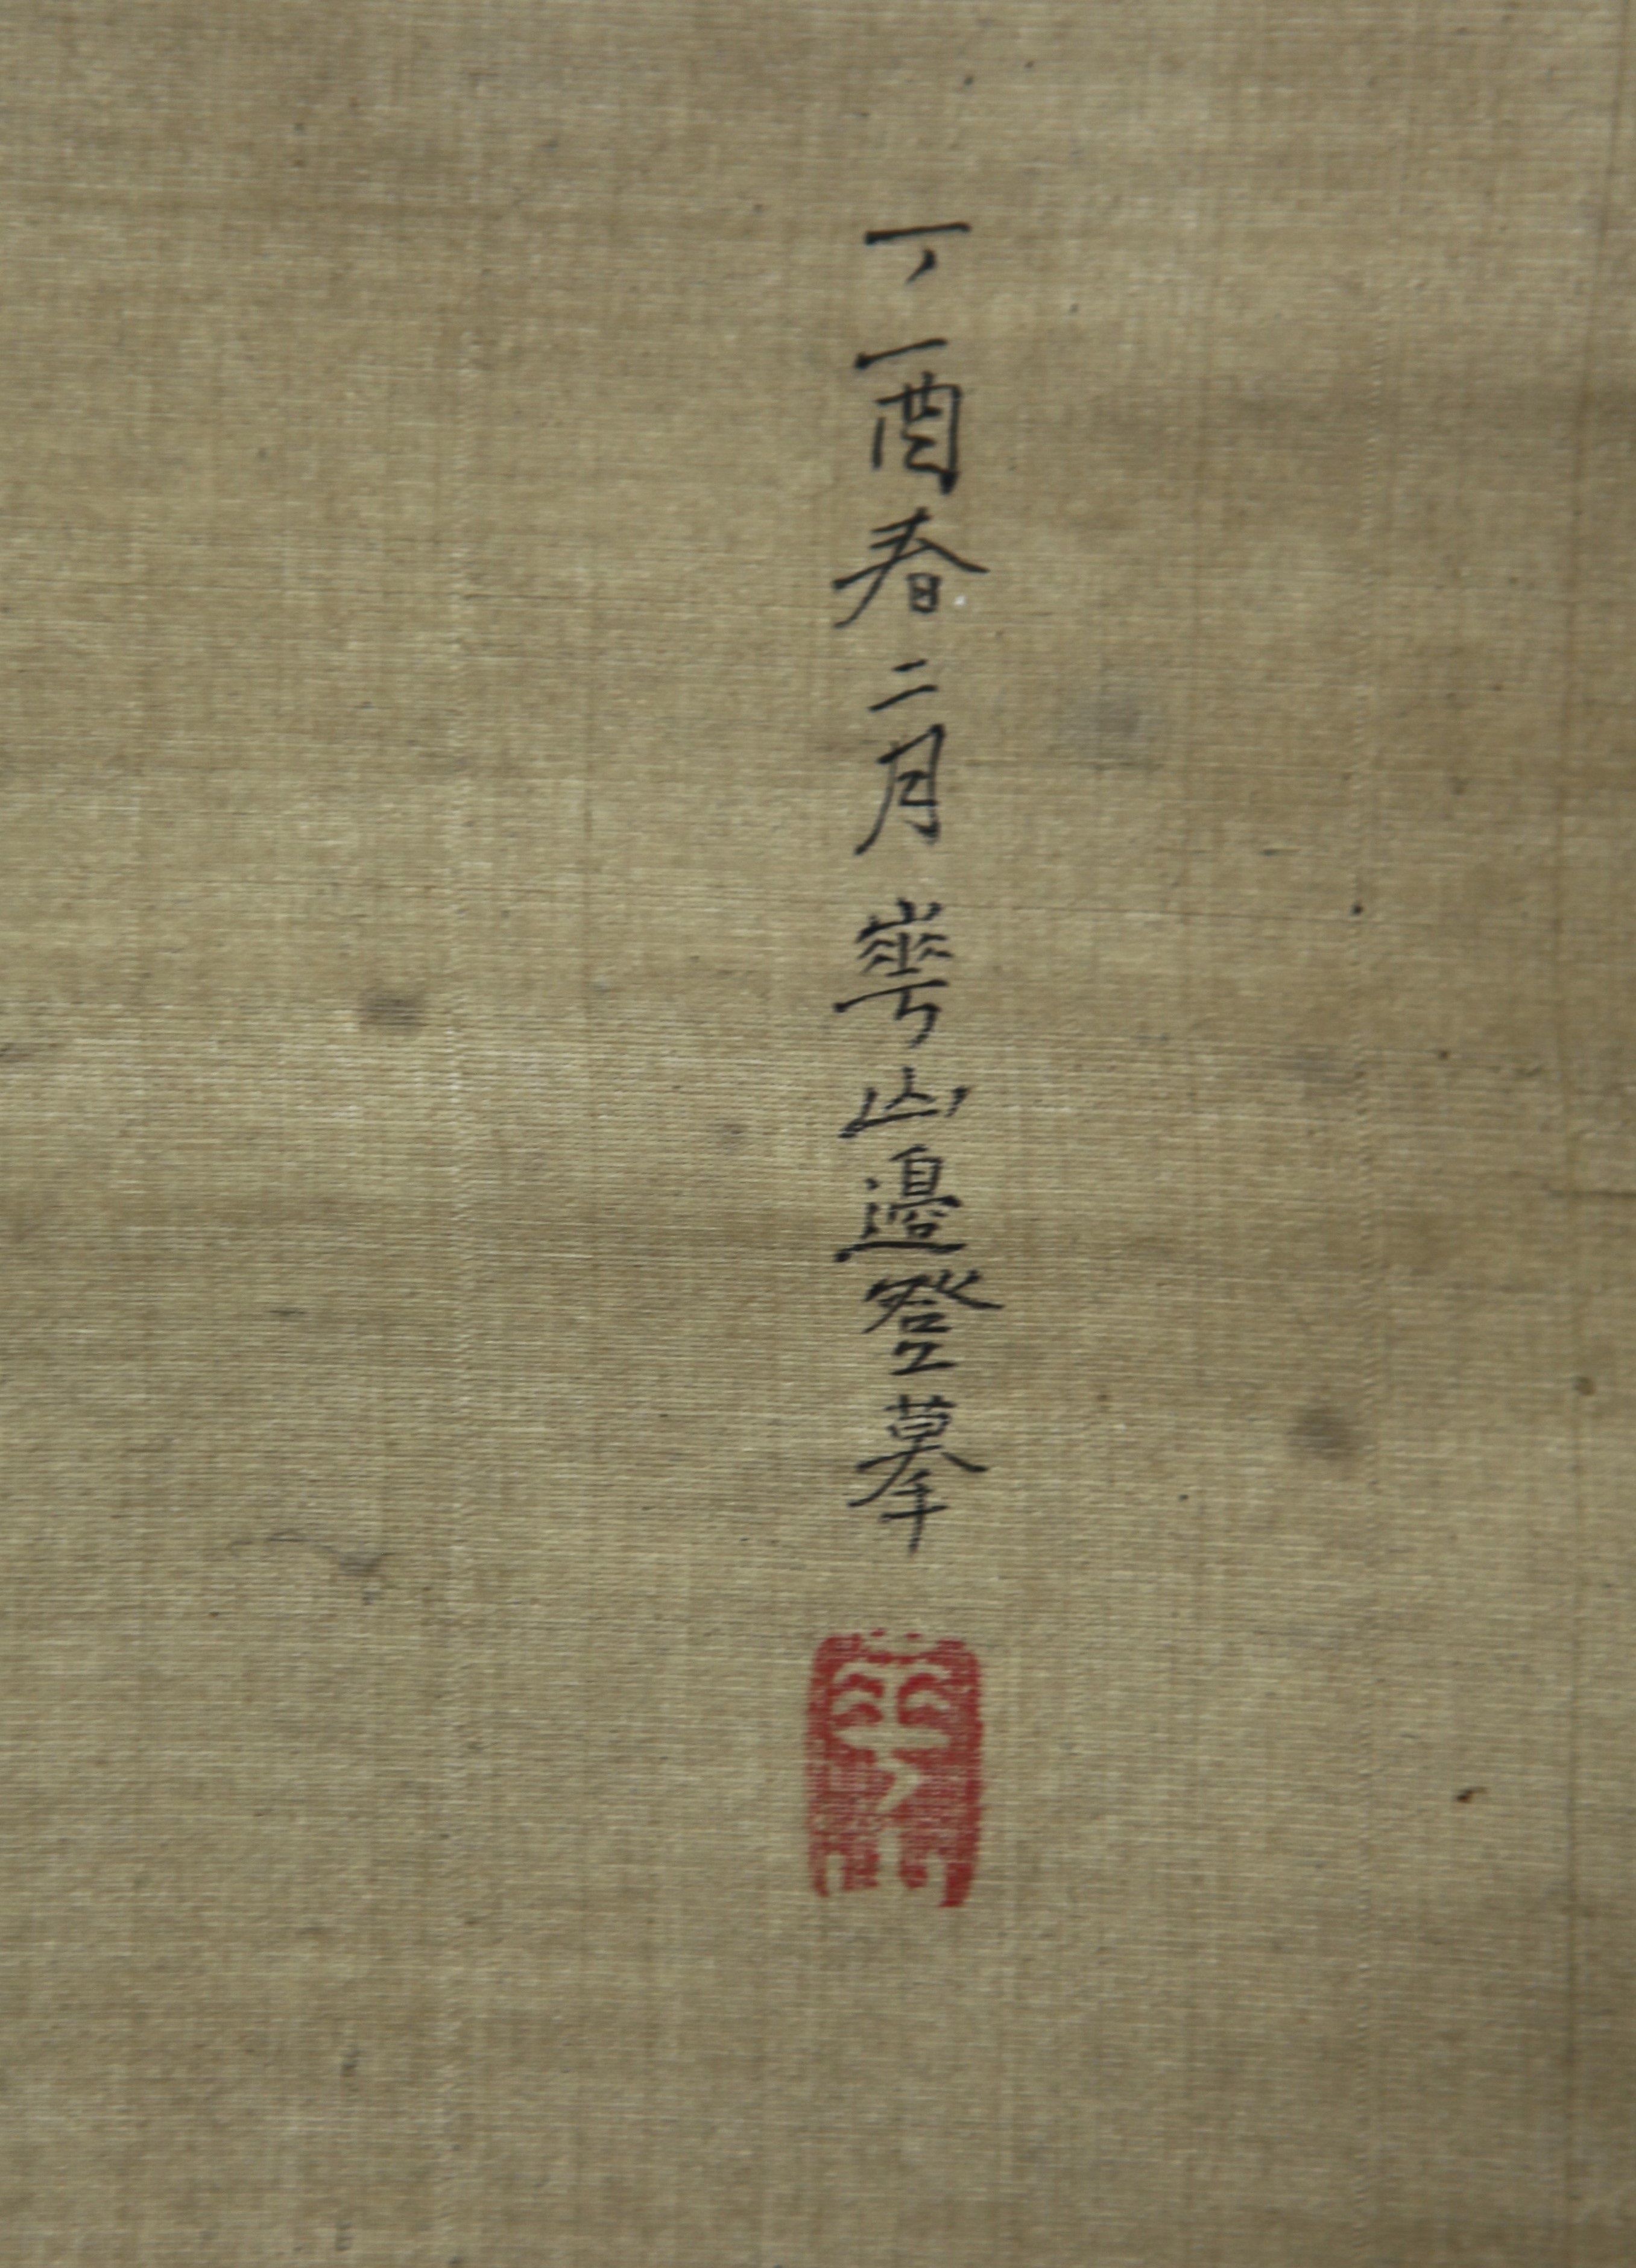 丁酉春二月崋山邉登摹